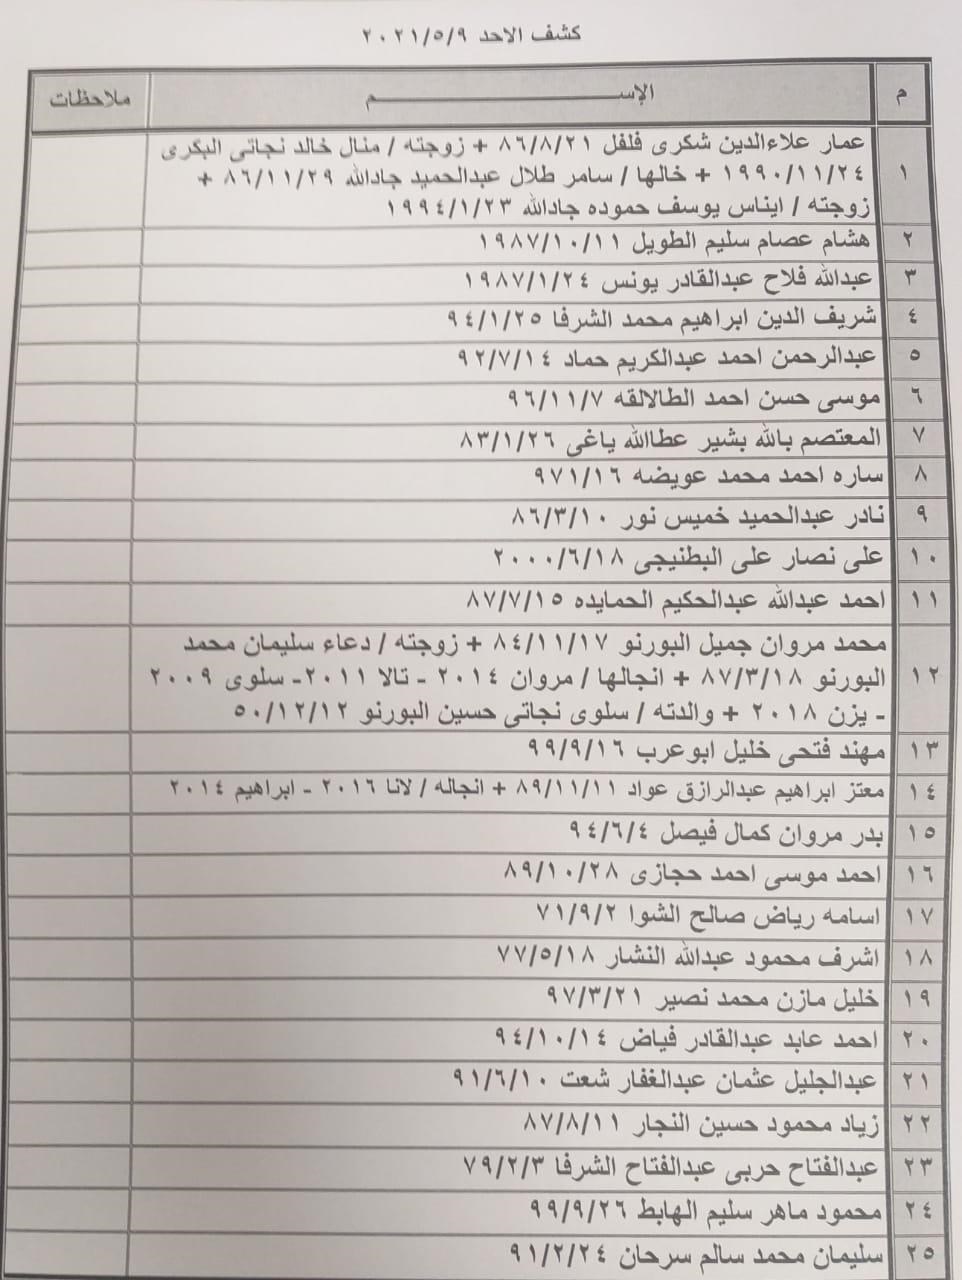 كشف الاحد ٢٠٢١/٥/٩
م الإســـــــم ملاحظات
١ عمار علاءالدين شكرى فلفل ٨٦/٨/٢١ + زوجته / منال خالد نجاتى البكرى
١٩٩٠/١١/٢٤ + خالها / سامر طلال عبدالحميد جادالله ٨٦/١١/٢٩ +
زوجته / ايناس يوسف حموده جادالله ١٩٩٤/١/٢٣
٢ هشام عصام سليم الطويل ١٩٨٧/١٠/١١
٣ عبدالله فلاح عبدالقادر يونس ١٩٨٧/١/٢٤
٤ شريف الدين ابراهيم محمد الشرفا ٩٤/١/٢٥
٥ عبدالرحمن احمد عبدالكريم حماد ٩٢/٧/١٤
٦ موسى حسن احمد الطالالقه ٩٦/١١/٧
٧ المعتصم بالله بشير عطاالله ياغى ٨٣/١/٢٦
٨ ساره احمد محمد عويضه ٩٧١/١٦
٩ نادر عبدالحميد خميس نور ٨٦/٣/١٠
١٠ على نصار على البطنيجى ٢٠٠٠/٦/١٨
١١ احمد عبدالله عبدالحكيم الحمايده ٨٧/٧/١٥
١٢ محمد مروان جميل البورنو ٨٤/١١/١٧ + زوجته / دعاء سليمان محمد
البورنو ٨٧/٣/١٨ + انجالها / مروان ٢٠١٤ - تالا ٢٠١١- سلوى ٢٠٠٩
- يزن ٢٠١٨ + والدته / سلوى نجاتى حسين البورنو ٥٠/١٢/١٢
١٣ مهند فتحى خليل ابوعرب ٩٩/٩/١٦
١٤ معتز ابراهيم عبدالرازق عواد ٨٩/١١/١١ + انجاله / لانا ٢٠١٦ - ابراهيم ٢٠١٤
١٥ بدر مروان كمال فيصل ٩٤/٦/٤
١٦ احمد موسى احمد حجازى ٨٩/١٠/٢٨
١٧ اسامه رياض صالح الشوا ٧١/٩/٢
١٨ اشرف محمود عبدالله النشار ٧٧/٥/١٨
١٩ خليل مازن محمد نصير ٩٧/٣/٢١
٢٠ احمد عابد عبدالقادر فياض ٩٤/١٠/١٤
٢١ عبدالجليل عثمان عبدالغفار شعت ٩١/٦/١٠
٢٢ زياد محمود حسين النجار ٨٧/٨/١١
٢٣ عبدالفتاح حربى عبدالفتاح الشرفا ٧٩/٢/٣
٢٤ محمود ماهر سليم الهابط ٩٩/٩/٢٦
٢٥ سليمان محمد سالم سرحان ٩١/٢/٢٤